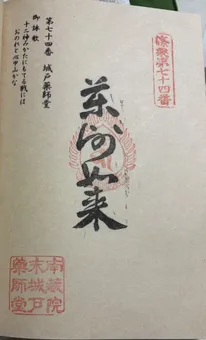 篠栗第七十四番
第七十四番 城戸薬師堂
御詠歌
十二神みかたにもてる戦には
おのれと心中山かな
薬師如来
南蔵院
末城戸
薬師堂